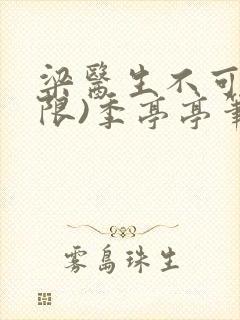 梁醫生不可
限)季亭亭筆
雾島珠生